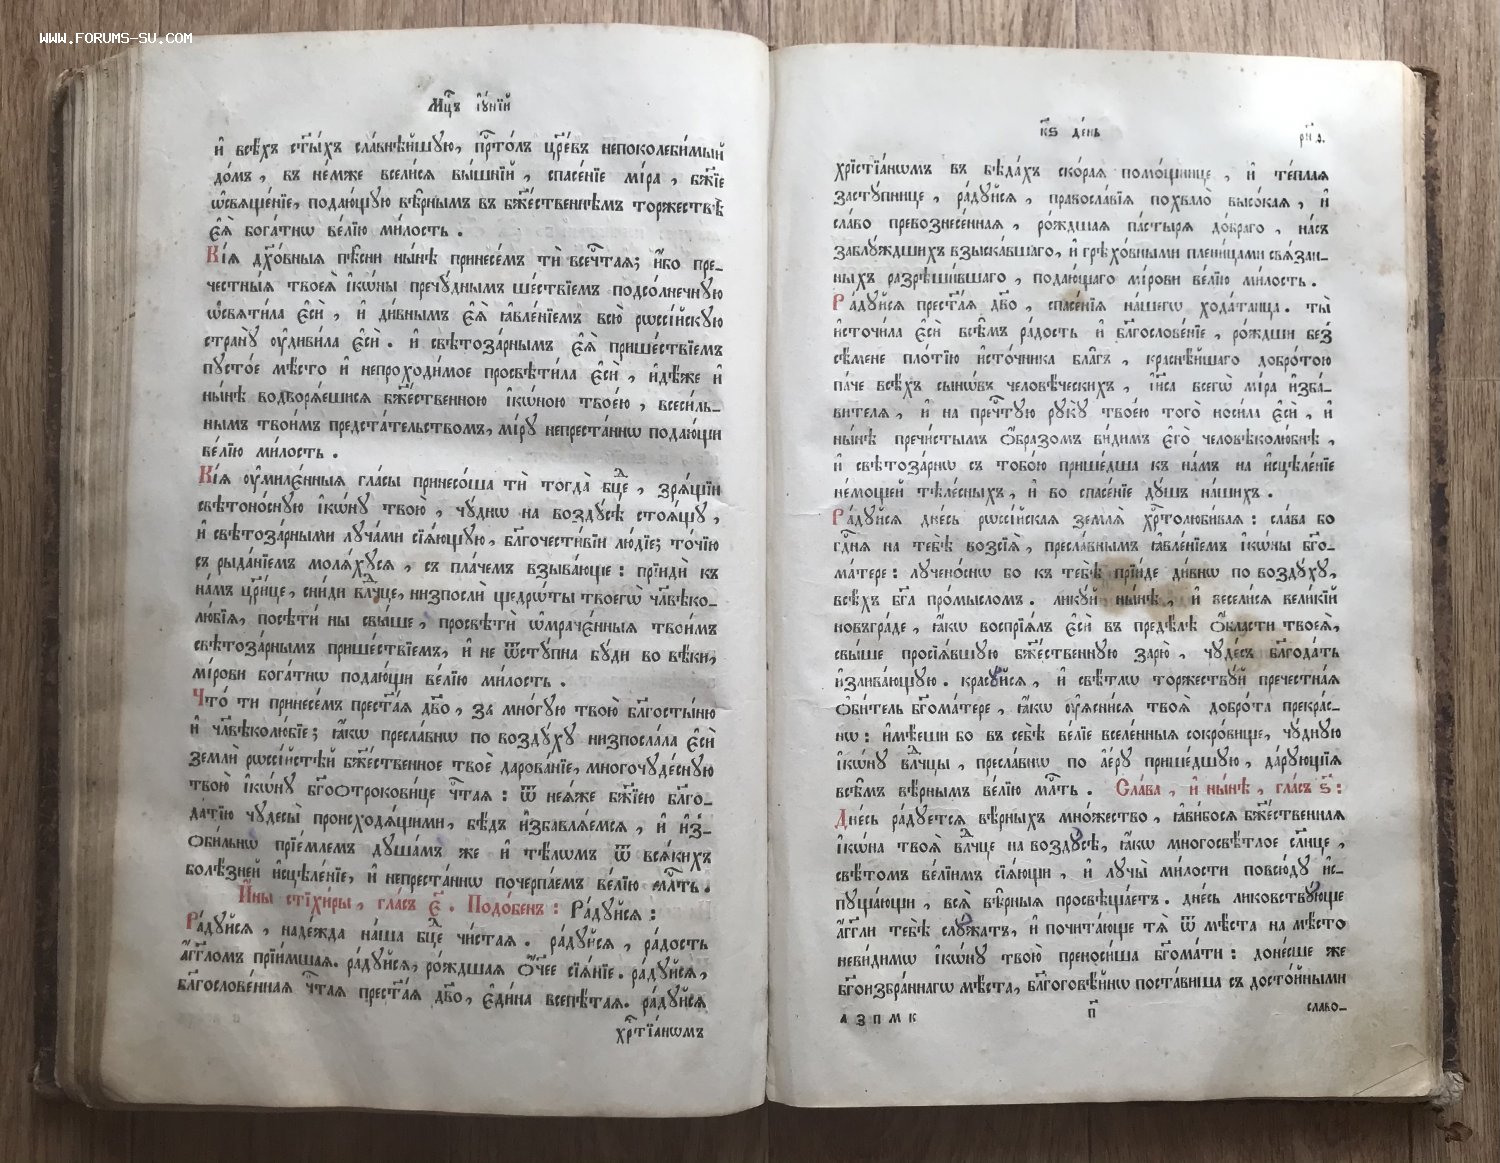 WWW.FORUMS-SU.COM
Мц҇ъ і҆у́нїй
и҆ всѣ́хъ ст҃ы́хъ сла́внѣйшую, прⷭ҇то́лъ цр҃е́въ непоколеби́мый
до́мъ, въ не́мже всели́сѧ вы́шнїй, спасе́нїе мі́ра, бж҃їе
ѡ҆свѧще́нїе, подаю́щую вѣ̑рнымъ въ бж҃е́ственнѣмъ торжествѣ̀
є҆ѧ̀ бога́тнѡ ве́лїю ми́лость.
Кі́ѧ дх҃о́вныѧ пѣ̑сни ны́нѣ принесе́мъ тѝ всечⷭ҇таѧ; и҆́бо пре-
честны́ѧ твоеѧ̀ і҆кѡ́ны пречу́днымъ ше́ствїемъ подсо́лнечную
ѡ҆свѧти́ла є҆сѝ, и҆ ди́внымъ є҆ѧ̀ ꙗ҆вле́нїемъ всю̀ рѡссі́йскую
страну̀ ᲂу҆диви́ла є҆сѝ. и҆ свѣтоза́рнымъ є҆ѧ̀ прише́ствїемъ
пусто́е мѣ́сто и҆ непроходи́мое просвѣти́ла є҆сѝ, и҆дѣ́же и҆
ны́нѣ водворѧ́ешисѧ бж҃е́ственною і҆кѡ́ною твое́ю, всеси́ль-
нымъ твои́мъ предста́тельствомъ, мі́ру непреста́ннѡ подаю́щи
ве́лїю ми́лость.
Кі́ѧ ᲂу҆миле́нныѧ гла́сы принесо́ша тѝ тогда̀ бц҃е, зрѧ́щїи
свѣтоно́сную і҆кѡ́ну твою̀, чу́днѡ на возду́сѣ стоѧ́щу,
и҆ свѣтоза́рными луча́ми сїѧ́ющую, бл҃гочести́вїи лю́дїе; то́чїю
съ рыда́нїемъ молѧ́хусѧ, съ пла́чемъ взыва́юще: прїидѝ къ
на́мъ цр҃и́це, сни́ди вл҃чце, низпослѝ щедрѡ́ты твоегѡ̀ чл҃вѣко-
лю́бїѧ, посѣти́ ны свы́ше, просвѣтѝ ѡ҆мраче́нныѧ твои́мъ
свѣтоза́рнымъ прише́ствїемъ, и҆ не ѿсту́пна бу́ди во вѣ́ки,
мі́рови бога́тнѡ подаю́щи ве́лїю ми́лость.
Что́ ти принесе́мъ прест҃а́ѧ дв҃о, за мно́гую твою̀ бл҃госты́ню
и҆ чл҃вѣколю́бїе; ꙗ҆́кѡ пресла́внѡ по возду́ху низпосла́ла є҆сѝ
землѝ рѡссі́йстѣй бж҃е́ственное твоѐ дарова́нїе, многочуде́сную
твою̀ і҆кѡ́ну бг҃оотрокови́це чⷭ҇таѧ: ѿ неѧ́же бж҃їею бл҃го-
да́тїю чудесы̀ происходѧ́щими, бѣ́дъ и҆збавлѧ́емсѧ, и҆ и҆з̾-
оби́льнѡ прїе́млемъ душа́мъ же и҆ тѣлѡ́мъ ѿ всѧ́кихъ
болѣ́зней и҆сцѣле́нїе, и҆ непреста́ннѡ почерпа́емъ ве́лїю млⷭ҇ть.
И҆́ны стїхи́ры, гла́съ є҃. Подо́бенъ: Ра́дуйсѧ:
Ра́дуйсѧ, наде́жда на́ша бц҃е чи́стаѧ. ра́дуйсѧ, ра́дость
а҆́гг҃ломъ прїи́мшаѧ. ра́дуйсѧ, ро́ждшаѧ ѻ҆́ч҃ее сїѧ́нїе. ра́дуйсѧ,
бл҃гослове́ннаѧ чⷭ҇таѧ прест҃а́ѧ дв҃о, є҆ди́на всепѣ́таѧ. ра́дуйсѧ
хрⷭ҇тїа́нѡмъ
к҃ѕ де́нь
рч҃а.
хрїстїа́нѡмъ въ бѣда́хъ ско́раѧ помо́щнице, и҆ те́плаѧ
засту́пнице, ра́дуйсѧ, правосла́вїѧ похвало̀ высо́каѧ, и҆
сла́во превознесе́ннаѧ, ро́ждшаѧ па́стырѧ до́браго, на́съ
заблу́ждшихъ взыска́вшаго, и҆ грѣхо́вными плени́цами свѧ́зан-
ныхъ разрѣши́вшаго, подаю́щаго мі́рови ве́лїю ми́лость.
Ра́дуйсѧ прест҃а́ѧ дв҃о, спасе́нїѧ на́шегѡ хода́таица. ты̀
и҆сточи́ла є҆сѝ всѣ̑мъ ра́дость и҆ бл҃гослове́нїе, ро́ждши без̾
сѣ́мене пло́тїю и҆сто́чника бла̑гъ, краснѣ́йшаго добро́тою
па́че всѣ́хъ сынѡ́въ человѣ́ческихъ, і҆и҃са всегѡ̀ мі́ра и҆зба́-
вителѧ, и҆ на пречⷭ҇тую руку̀ твое́ю того̀ носи́ла є҆сѝ, и҆
ны́нѣ пречи́стымъ ѻ҆́бразомъ ви́димъ є҆го̀ человѣколю́бнѣ,
и҆ свѣтоза́рнѡ съ тобо́ю прише́дша къ на́мъ на и҆сцѣле́нїе
не́мощей тѣле́сныхъ, и҆ во спасе́нїе ду́шъ на́шихъ.
Ра́дуйсѧ дне́сь рѡссі́йскаѧ землѧ̀ хрⷭ҇толюби́ваѧ: сла́ва бо
гдⷭ҇нѧ на тебѣ̀ возсїѧ̀, пресла́внымъ ꙗ҆вле́нїемъ і҆кѡ́ны бг҃о-
ма́тере: лучено́снѡ бо къ тебѣ̀ прїи́де ди́внѡ по возду́ху,
всѣ́хъ бг҃а про́мысломъ. лику́й ны́нѣ, и҆ весели́сѧ вели́кїй
новъгра́де, ꙗ҆́кѡ воспрїѧ́лъ є҆сѝ въ предѣ́лѣ ѻ҆́бласти твоеѧ̀,
свы́ше просїѧ́вшую бж҃е́ственную зарю̀, чуде́съ бл҃года́ть
и҆злива́ющую. красу́йсѧ, и҆ свѣ́тлѡ торжеству́й пречестна́ѧ
ѻ҆би́тель бг҃ома́тере, ꙗ҆́кѡ ᲂу҆ѧсни́сѧ твоѧ̀ добро́та прекра́с-
нѡ: и҆мѣ́еши бо въ себѣ̀ ве́лїе вселе́нныѧ сокро́вище, чу́дную
і҆кѡ́ну вл҃чцы, пресла́внѡ по а҆е́ру прише́дшую, да́рующїѧ
всѣ̑мъ вѣ̑рнымъ ве́лїю млⷭ҇ть. Сла́ва, и҆ ны́нѣ, гла́съ ѕ҃:
Дне́сь ра́дуетсѧ вѣ́рныхъ мно́жество, ꙗ҆ви́босѧ бж҃е́ственнаѧ
і҆кѡ́на твоѧ̀ вл҃чце на возду́сѣ, ꙗ҆́кѡ многосвѣ́тлое сл҃нце,
свѣ́томъ ве́лїимъ сїѧ́ющи, и҆ лучы̀ ми́лости повсю́ду и҆с-
пуща́ющи, всѧ̑ вѣ̑рныѧ просвѣща́етъ. дне́сь ликовству́юще
а҆́гг҃ли тебѣ̀ слу́жатъ, и҆ почита́юще тѧ̀ ѿ мѣ́ста на мѣ́сто
неви́димѡ і҆кѡ́ну твою̀ преноси́ша бг҃ома́ти: доне́сше же
бг҃оизбра́ннагѡ мѣ́ста, бл҃гоговѣ́йнѡ поста́виша съ досто́йными
а з п м к
п҃
славо-